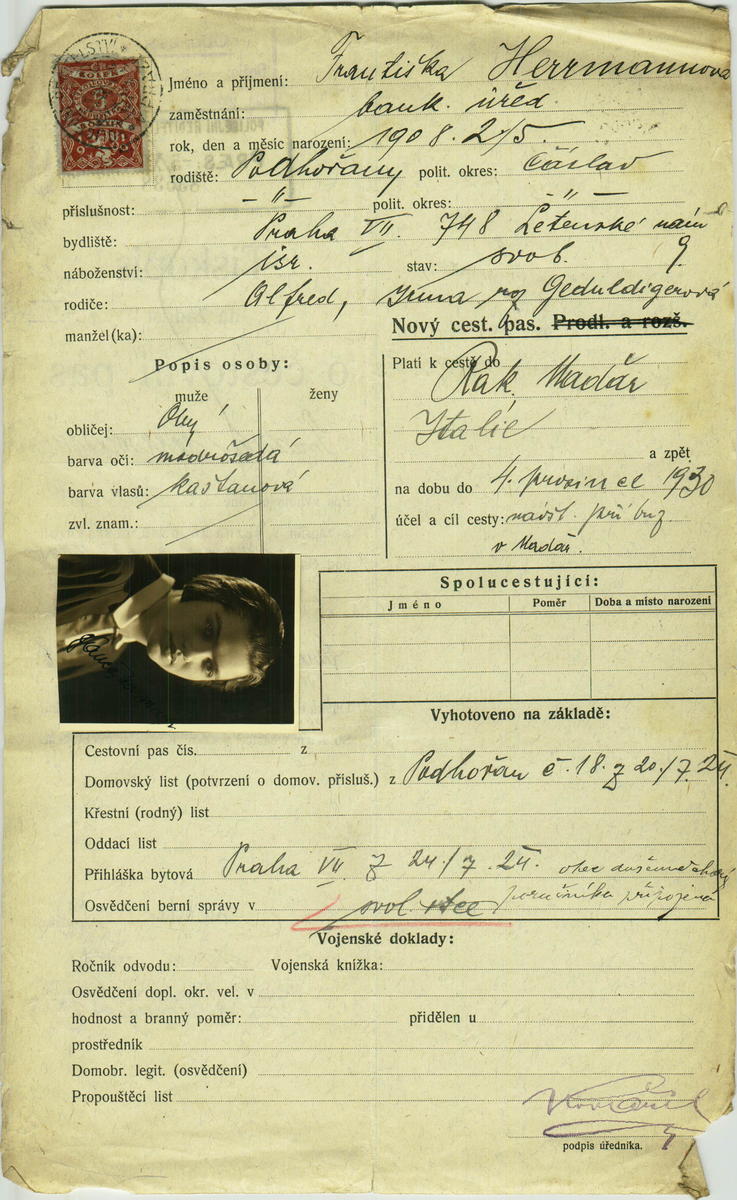 KOLEK
Jméno a příjmení: Františka Herrmannova
zaměstnání: bank. úřed.
rok, den a měsíc narození: 1908. 2/5.
rodiště: Podhořany polit. okres: Čáslav
příslušnost: – " – polit. okres: – " –
bydliště: Praha VII. 748 Letenské nám
náboženství: isr. stav: svob. 9.
rodiče: Alfred, Irma roz Geduldigerová
manžel(ka):
Nový cest. pas. Prodl. a rozš.
Popis osoby:
muže ženy
obličej:
barva očí: modrošedá
barva vlasů: kaštanová
zvl. znam.:
Platí k cestě do Rak. Maďar
Italie
a zpět
na dobu do 4. prosince 1930
účel a cíl cesty: návšt. příbuz
v Maďar.
Spolucestující:
Jméno Poměr Doba a místo narození
Vyhotoveno na základě:
Cestovní pas čís. z
Domovský list (potvrzení o domov. přísluš.) z Podhořan č. 18. z 20./7. 24.
Křestní (rodný) list
Oddací list
Přihláška bytová Praha VII z 24./7. 24.
Osvědčení berní správy v svol. otce poručníka připojená
Vojenské doklady:
Ročník odvodu: Vojenská knížka:
Osvědčení dopl. okr. vel. v
hodnost a branný poměr: přidělen u
prostředník
Domobr. legit. (osvědčení)
Propouštěcí list
podpis úředníka.